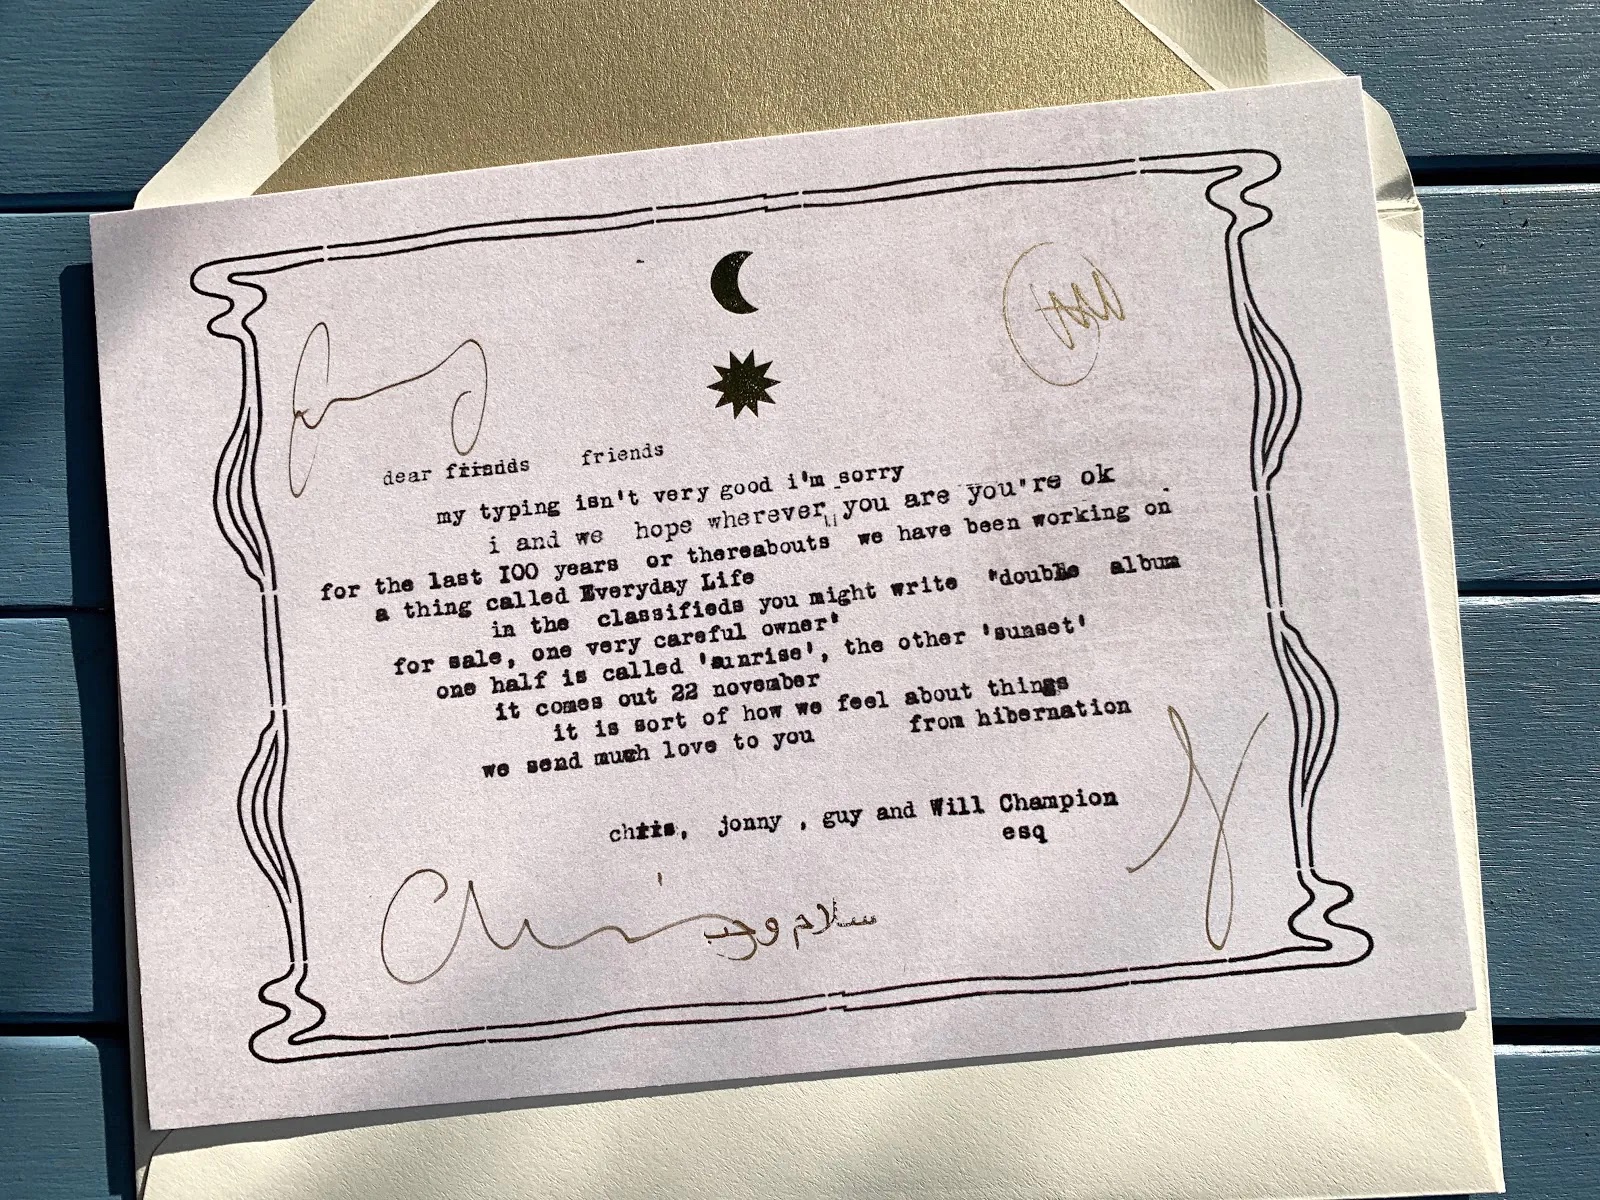 dear friends friends
my typing isn't very good i'm sorry
i and we hope wherever you are you're ok
for the last 100 years or thereabouts we have been working on
a thing called Everyday Life
in the classifieds you might write 'double album
for sale, one very careful owner'
one half is called 'sunrise', the other 'sunset'
it comes out 22 november
it is sort of how we feel about things
we send much love to you from hibernation
chris, jonny , guy and Will Champion
esq
Chris سلام وحب